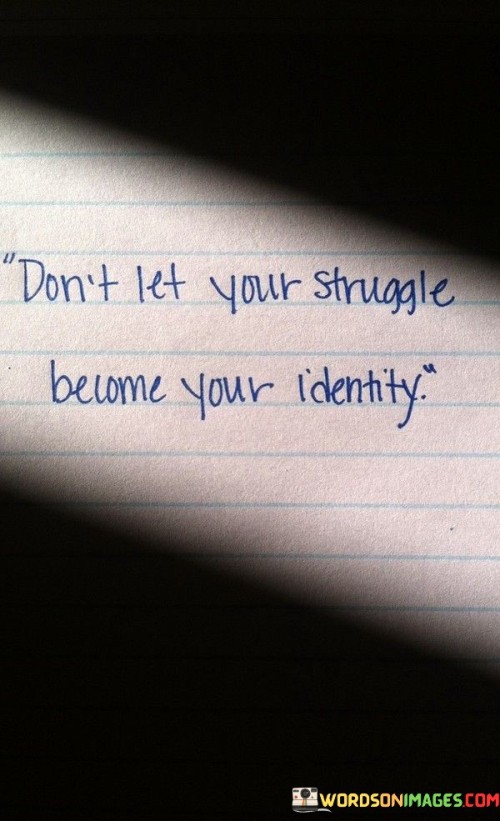 "Don't let your struggle
become your identity."
WORDSONIMAGES.COM